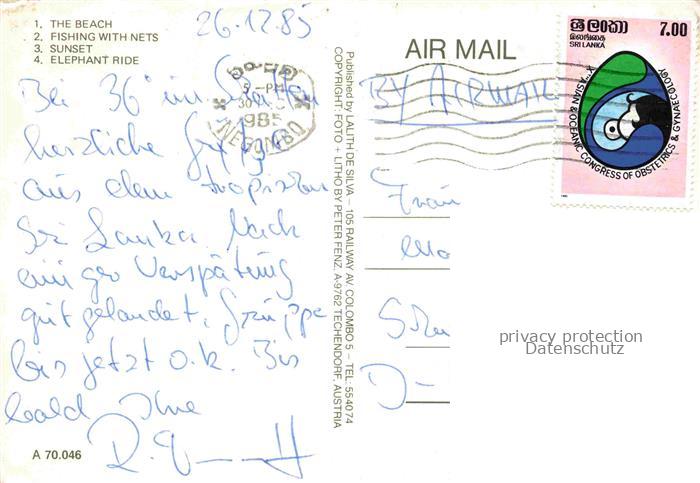 1. THE BEACH
2. FISHING WITH NETS
3. SUNSET
4. ELEPHANT RIDE
26.12.85
Bei 36° im Schatten
herzliche Grüße
aus dem tropischen
Sri Lanka. Nach
einiger Verspätung
gut gelandet, Gruppe
bis jetzt o.k. Bis
bald Ihre
A 70.046
5-PM
30
985
NEGOMBO
Published by LALITH DE SILVA – 105 RAILWAY AV. COLOMBO 5 – TEL: 554074
COPYRIGHT: FOTO + LITHO BY PETER FENZ, A-9762 TECHENDORF, AUSTRIA
AIR MAIL
BY AIRMAIL
ශ්‍රී ලංකා
இலங்கை
SRI LANKA
7.00
Xth ASIAN & OCEANIC CONGRESS OF OBSTETRICS & GYNAECOLOGY
Frau
D-
privacy protection
Datenschutz